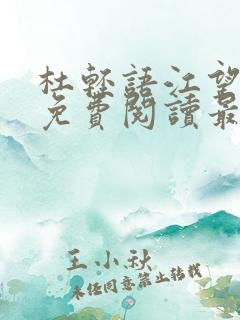 杜輕語江望
免費閱讀最
王小秋
未经同意禁止转载